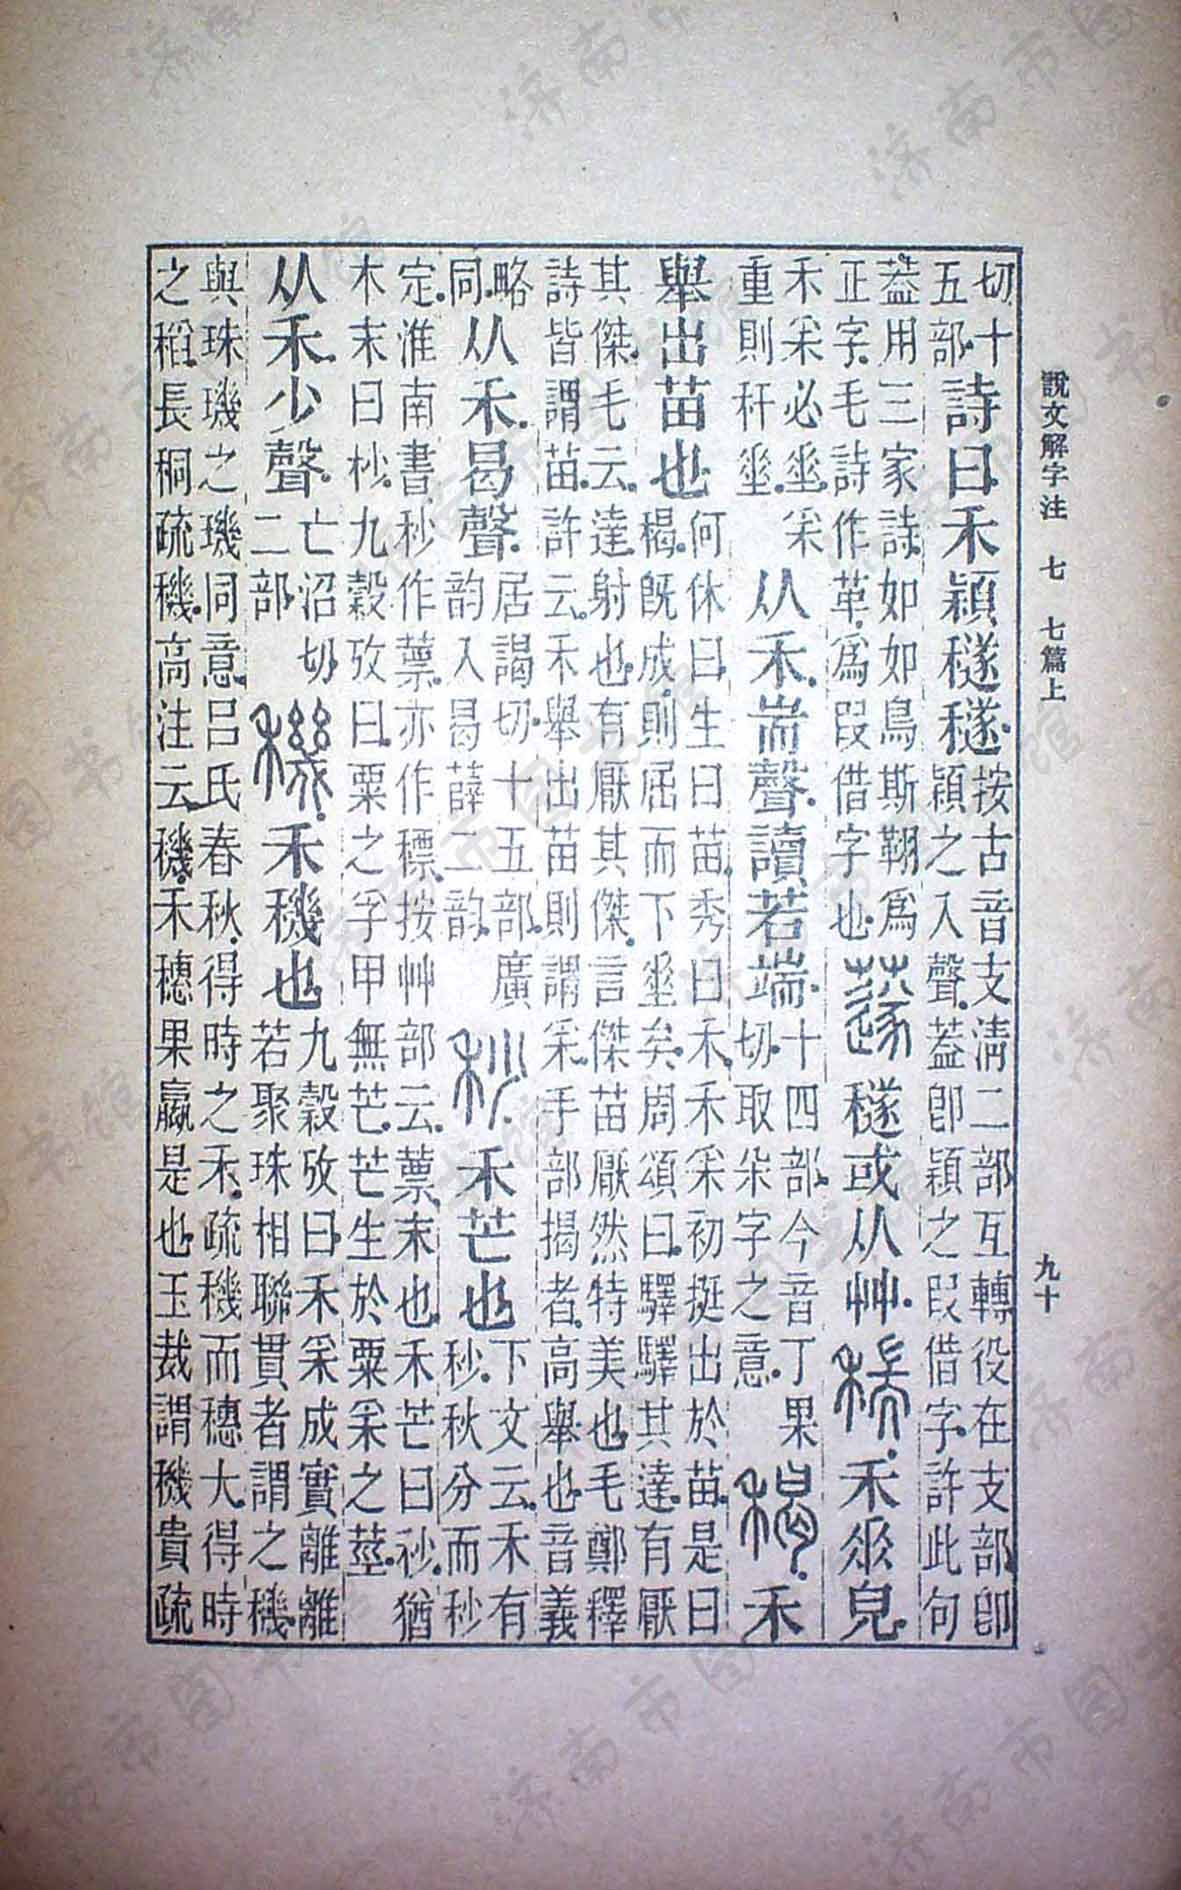 說文解字注 七 七篇上
九十
切十五部詩曰禾穎穟穟按古音支淸二部互轉役在支部卽穎之入聲蓋卽穎之叚借字許此句
蓋用三家詩如如鳥斯翱爲正字毛詩作革爲叚借字也䔹穟或从艸䅔禾𠂹皃
禾采必𠂹采重則杆𠂹从禾耑聲讀若端十四部今音丁果切取朵字之意䅥禾
舉出苗也何休曰生曰苗秀曰禾禾采初挺出於苗是曰䅥旣成則屈而下𠂹矣周頌曰驛驛其達有厭
其傑毛云達射也有厭其傑言傑苗厭然特美也毛鄭釋詩皆謂苗許云禾舉出苗則謂采手部揭者高舉也音義
略同从禾曷聲居謁切十五部廣韵入曷薛二韵秒禾芒也下文云禾有秒秋分而秒
定淮南書秒作蔈亦作標按艸部云蔈末也禾芒曰秒猶木末曰杪九穀攷曰粟之孚甲無芒芒生於粟采之莖
从禾少聲亡沼切二部穖禾穖也九穀攷曰禾采成實離離若聚珠相聯貫者謂之穖
與珠璣之璣同意呂氏春秋得時之禾疏穖而穗大得時之稻長桐疏穖高注云穖禾穗果臝是也玉裁謂穖貴疏
济南市图书馆